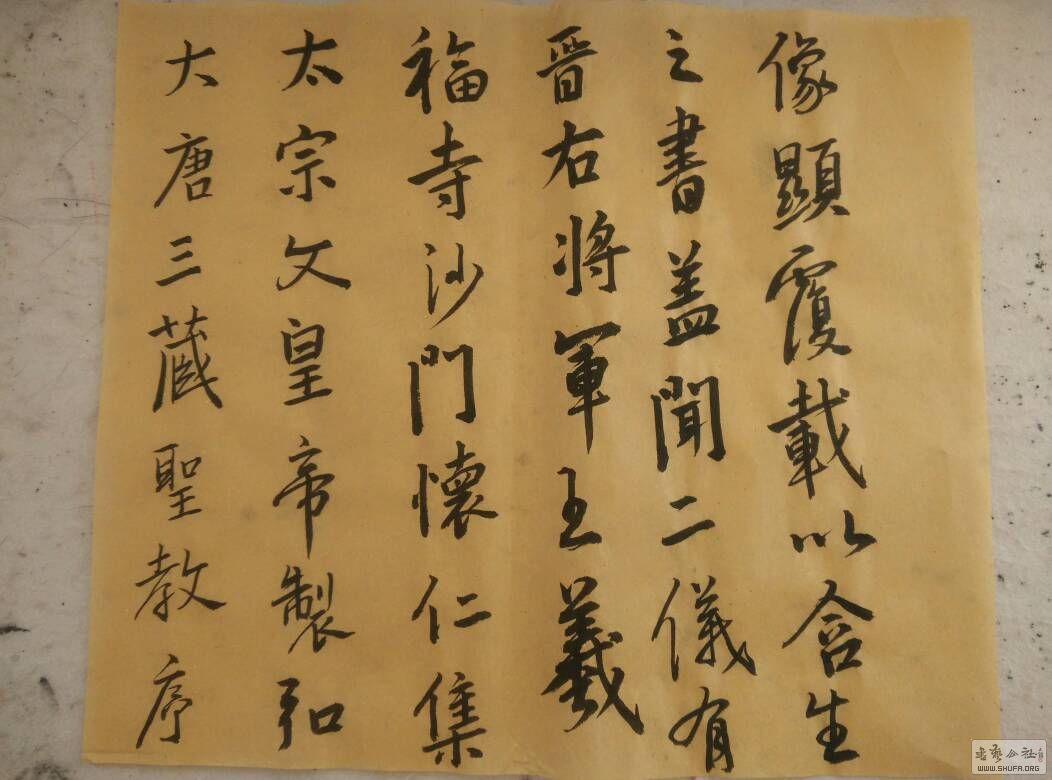 大唐三藏聖教序
太宗文皇帝製弘
福寺沙門懷仁集
晋右将軍王羲
之書盖聞二儀有
像顯覆載以含生
书艺公社
WWW.SHUFA.ORG